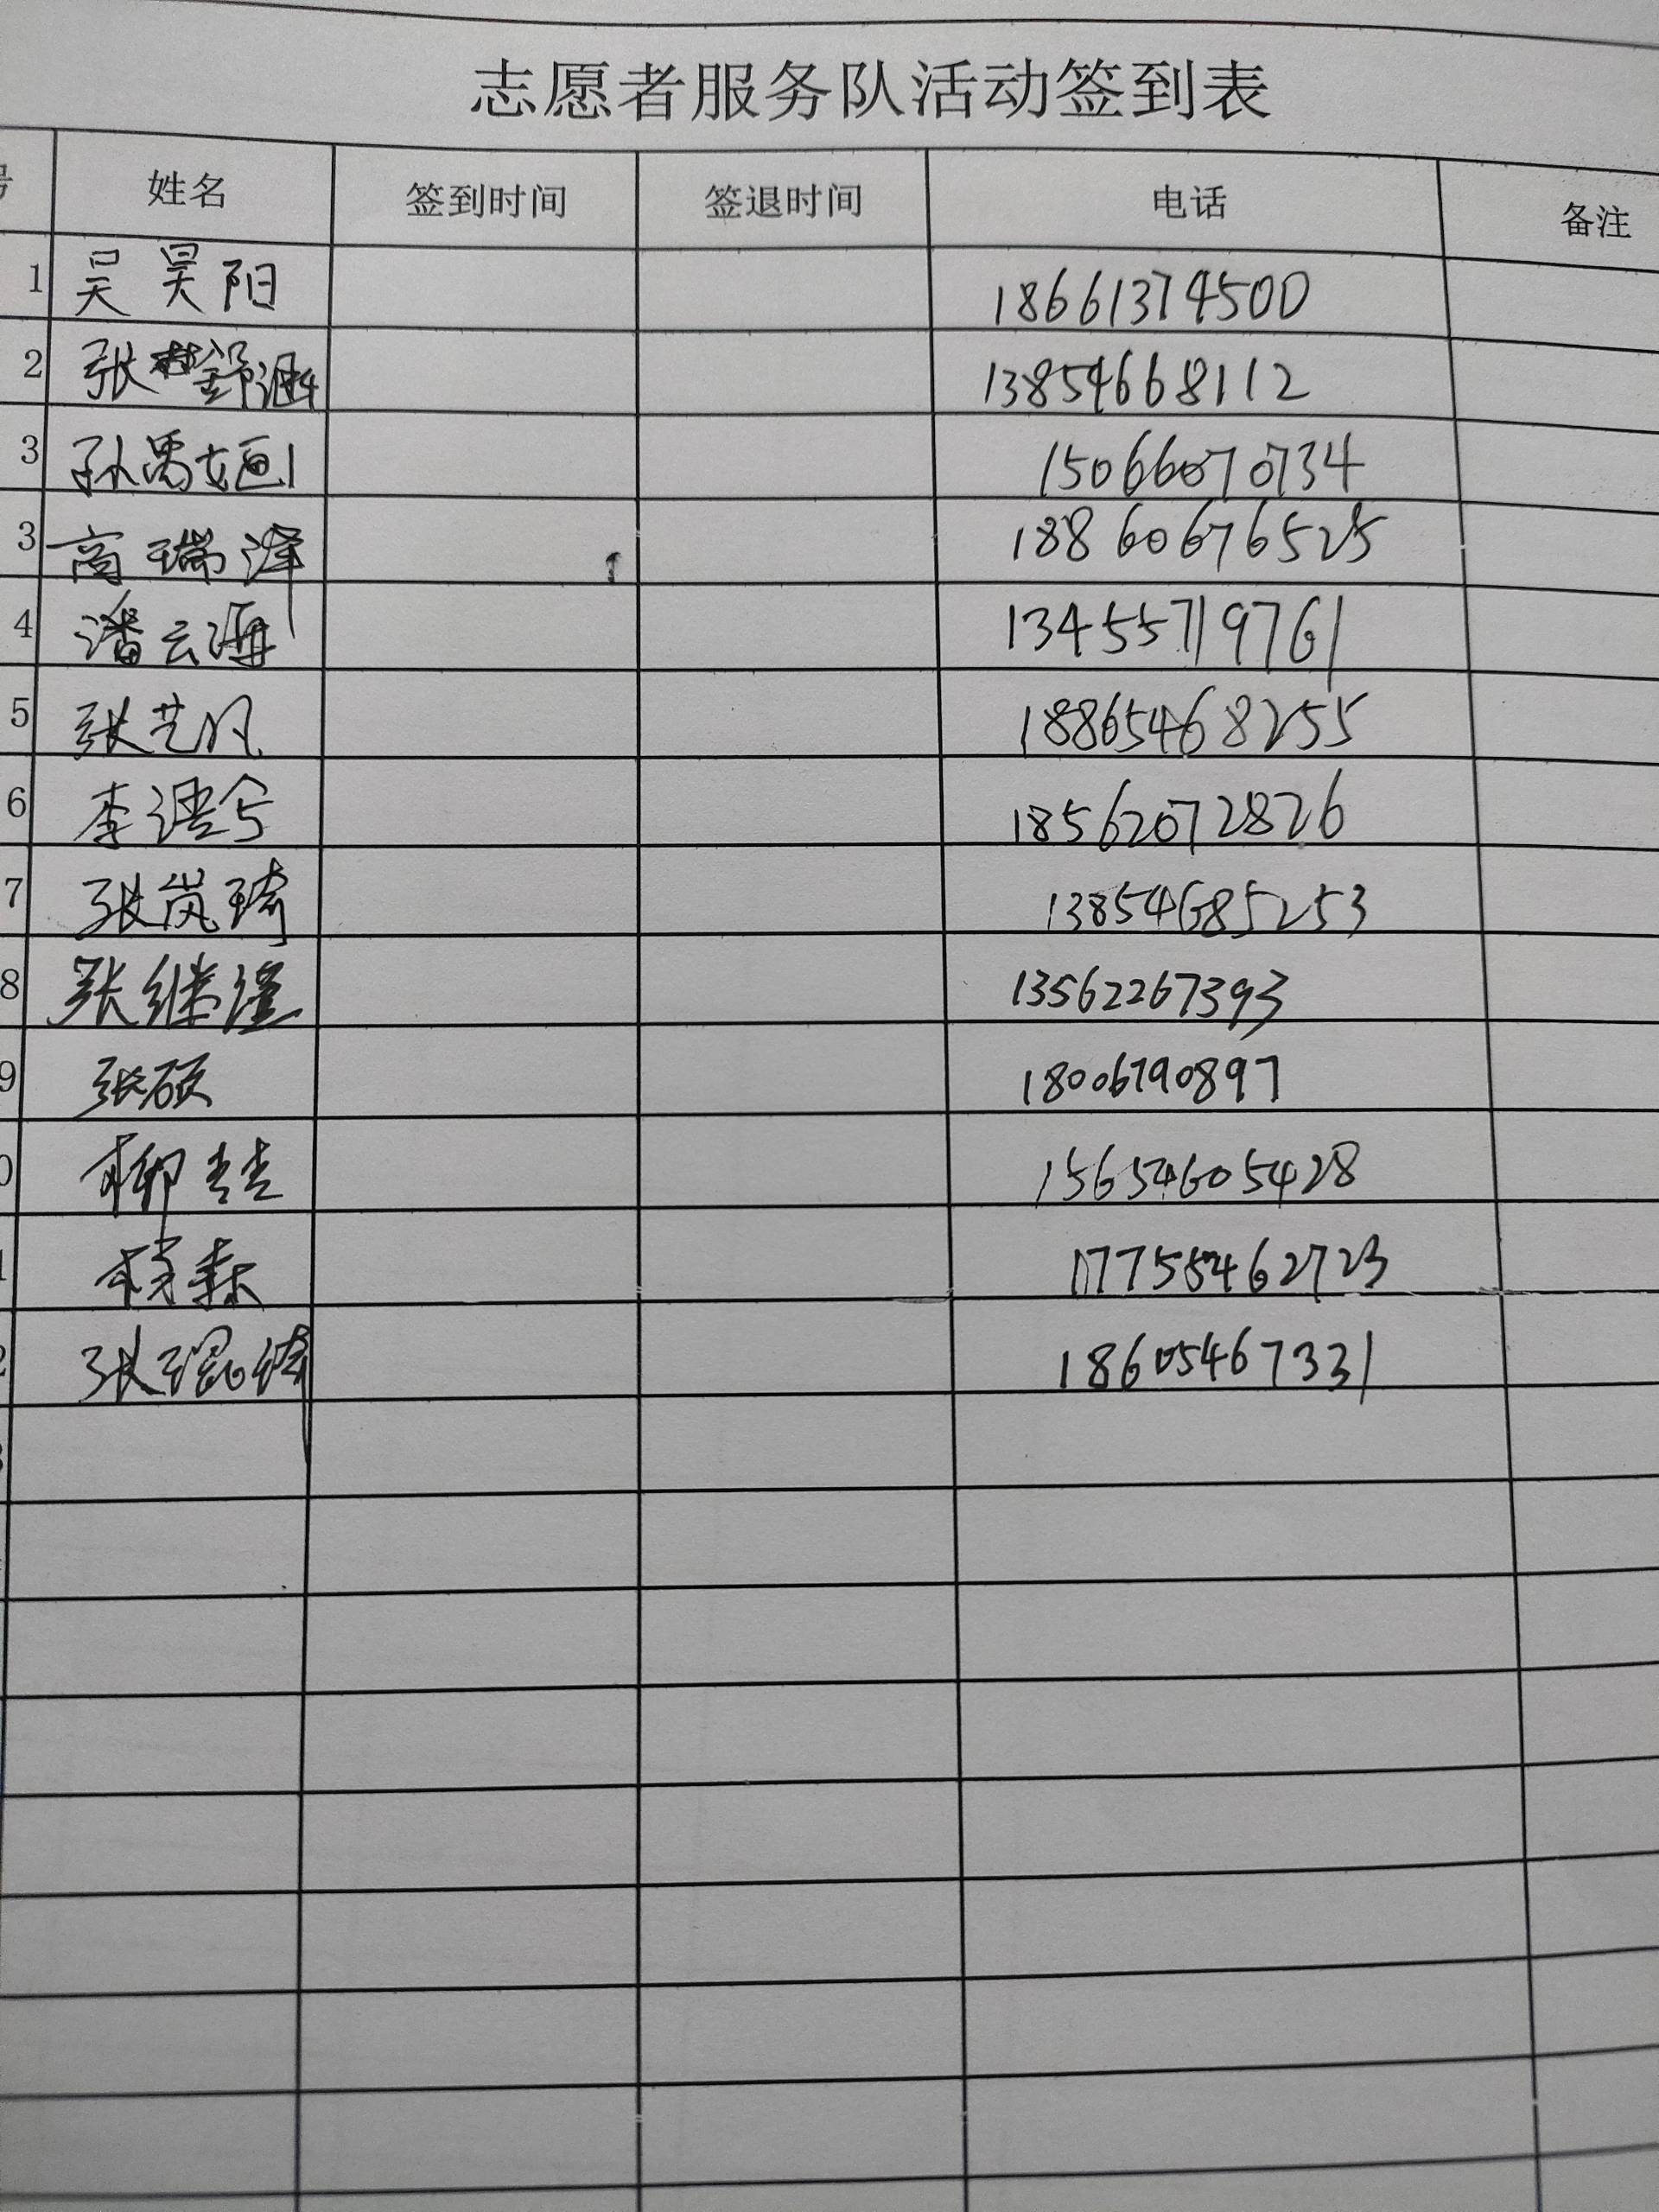 志愿者服务队活动签到表
号 姓名 签到时间 签退时间 电话 备注
1 吴昊阳 18661374500
2 张舒涵 13854668112
3 孙禹 15066070734
3 高瑞泽 18860676525
4 潘云海 13455719761
5 张艺凡 18865468255
6 李 18562072826
7 张岚琦 13854685253
8 张继 13562267393
9 张硕 18006790897
柳喆 15654605428
杨森 17755462723
张 18605467331